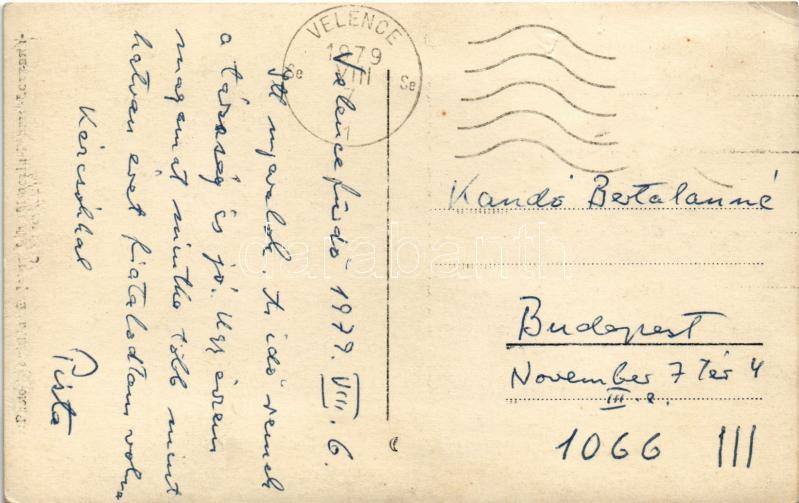 VELENCE
1979
VIII
Se Se
Velencefürdő 1979. VIII. 6.
Itt nyaralok. Az idő remek
a társaság is jó. Úgy érzem
magamat mintha több mint
hatvan évet fiatalodtam volna
Kézcsókkal
Pista
Kandó Bertalanné
Budapest
November 7 Tér 4
III. e.
1066 III
darabanth